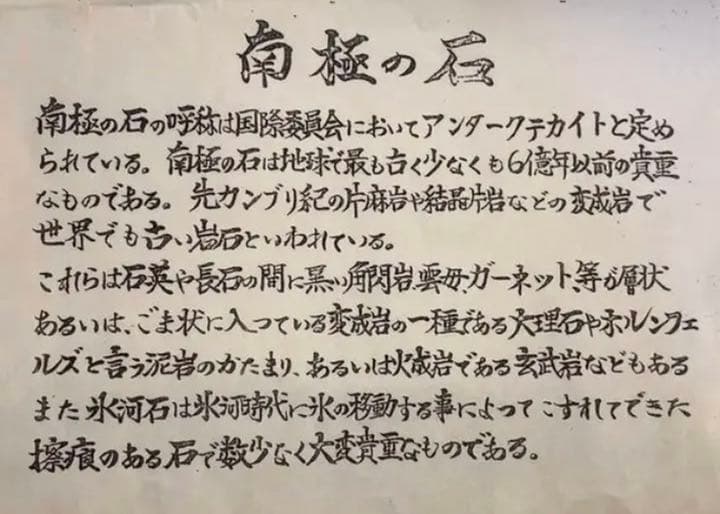 南極の石
南極の石の呼称は国際委員会においてアンタークテカイトと定め
られている。南極の石は地球で最も古く少なくも6億年以前の貴重
なものである。先カンブリ紀の片麻岩や結晶片岩などの変成岩で
世界でも古い岩石といわれている。
これらは石英や長石の間に黒い角閃岩、雲母、ガーネット、等が層状
あるいは、ごま状に入っている変成岩の一種である大理石やホルンフェ
ルズと言う泥岩のかたまり、あるいは火成岩である玄武岩などもある
また氷河石は氷河時代に氷の移動する事によってこすれてできた
擦痕のある石で数少なく大変貴重なものである。